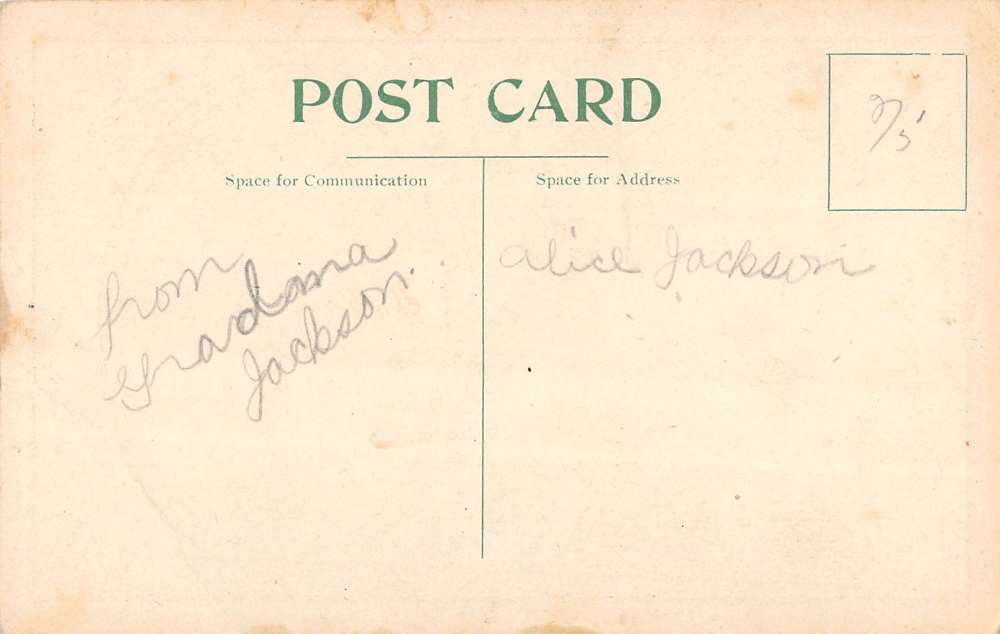 POST CARD
Space for Communication
from
Gradma
Jackson.
Space for Address
Alice Jackson